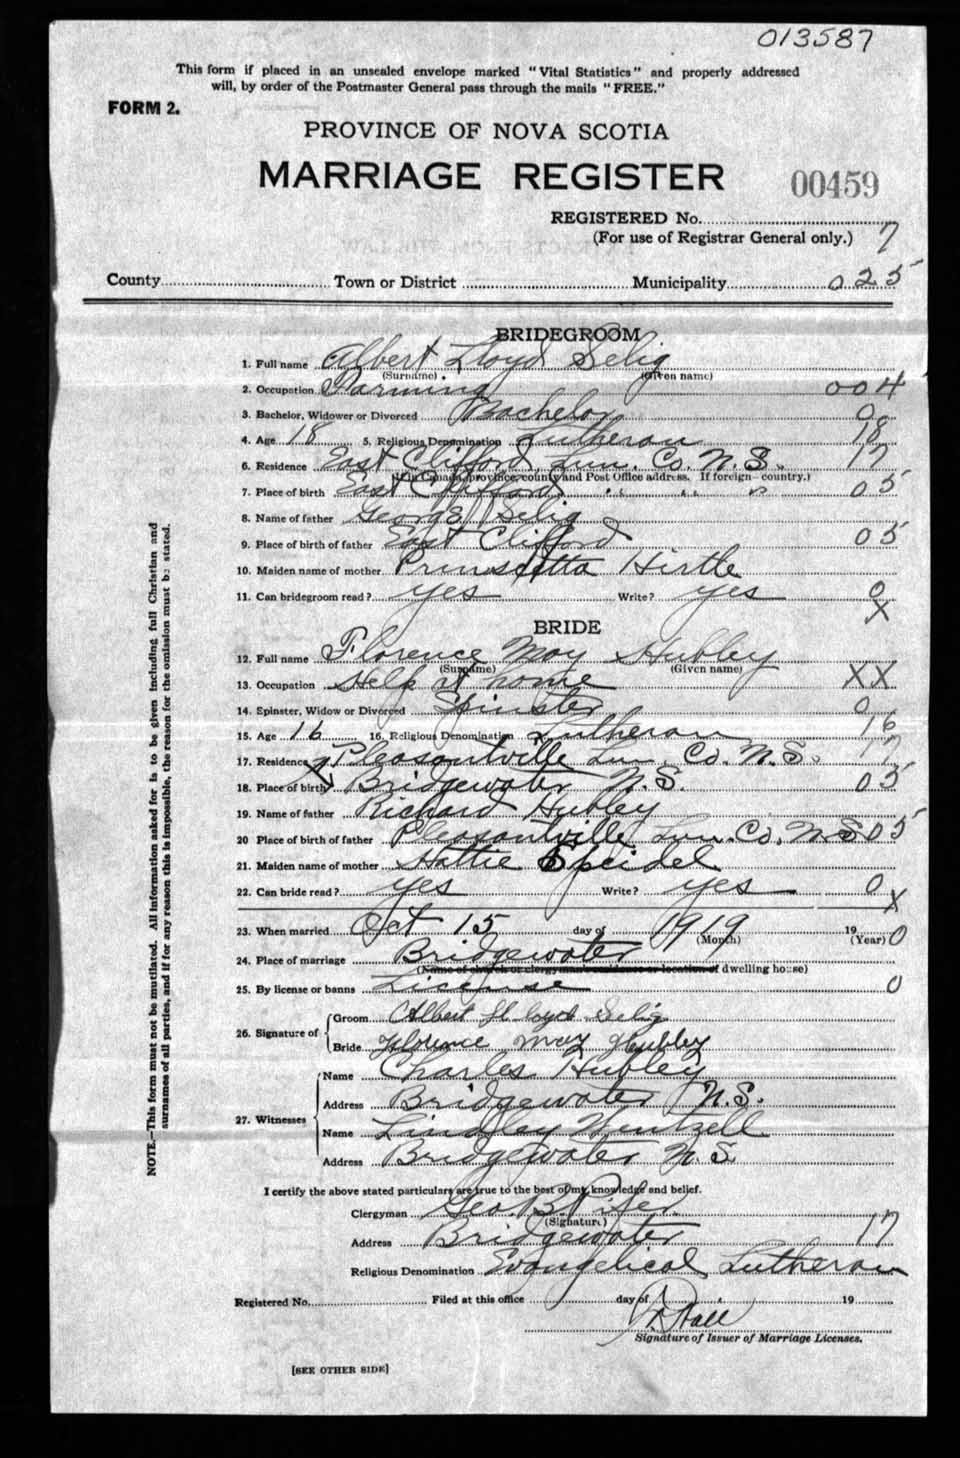 013587
This form if placed in an unsealed envelope marked "Vital Statistics" and properly addressed
will, by order of the Postmaster General pass through the mails "FREE."
FORM 2.
PROVINCE OF NOVA SCOTIA
MARRIAGE REGISTER 00459
REGISTERED No.
(For use of Registrar General only.) 7
County Town or District Municipality 025
BRIDEGROOM
1. Full name Albert Lloyd Selig
(Surname) (Given name)
2. Occupation Farming 004
3. Bachelor, Widower or Divorced Bachelor 0
4. Age 18 5. Religious Denomination Lutheran 18
6. Residence East Clifford, Lun. Co. N.S. 17
(If in Canada, province, county and Post Office address. If foreign—country.)
7. Place of birth East Clifford " " " 05
8. Name of father George Selig
9. Place of birth of father East Clifford 05
10. Maiden name of mother Hirtle
11. Can bridegroom read? yes Write? yes 0
X
BRIDE
12. Full name Florence May Hubley
(Surname) (Given name)
13. Occupation Help at home XX
14. Spinster, Widow or Divorced Spinster 0
15. Age 16 16. Religious Denomination Lutheran 16
17. Residence Pleasantville Lun. Co. N.S. 17
18. Place of birth Bridgewater N.S. 05
19. Name of father Richard Hubley
20 Place of birth of father Pleasantville Lun. Co. N.S. 05
21. Maiden name of mother Hattie Speidel
22. Can bride read? yes Write? yes 0
X
23. When married Oct 15 day of 1919 19 0
(Month) (Year)
24. Place of marriage Bridgewater
(Name of church or clergyman's residence or location of dwelling house)
25. By license or banns License 0
26. Signature of Groom Albert Lloyd Selig
Bride Florence May Hubley
27. Witnesses Name Charles Hubley
Address Bridgewater N.S.
Name Lindley Wentzell
Address Bridgewater N.S.
I certify the above stated particulars are true to the best of my knowledge and belief.
Clergyman Geo. B. Pifer
(Signature)
Address Bridgewater 17
Religious Denomination Evangelical Lutheran
Registered No. Filed at this office day of 19
Hall
Signature of Issuer of Marriage Licenses.
[SEE OTHER SIDE]
NOTE.—This form must not be mutilated. All information asked for is to be given including full Christian and
surnames of all parties, and if for any reason this is impossible, the reason for the omission must be stated.